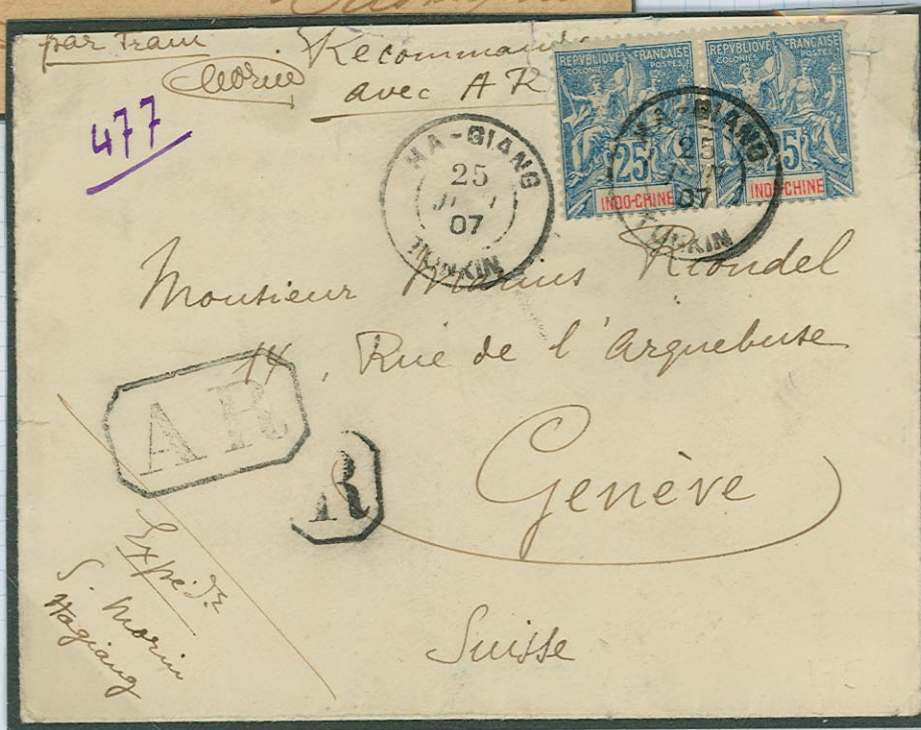 par Train
Recommandé
avec AR
477
REPVBLIQVE FRANÇAISE
COLONIES POSTES
25
INDO-CHINE
REPVBLIQVE FRANÇAISE
COLONIES POSTE
25
INDO-CHINE
HA-GIANG
25
JUIN
07
TUNKIN
HA-GIANG
25
JUIN
07
TUNKIN
Monsieur Marius Riondel
14, Rue de l'Arquebuse
AR
R
Genève
Suisse
Expéd.
S. Morin
Hagiang